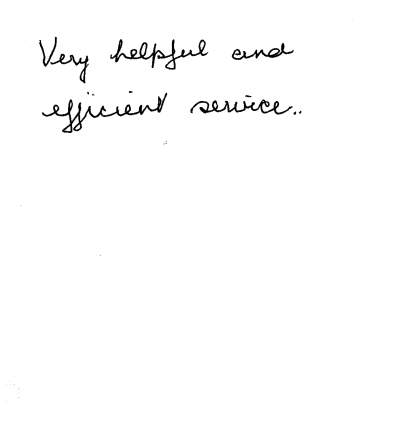 Very helpful and
efficient service..